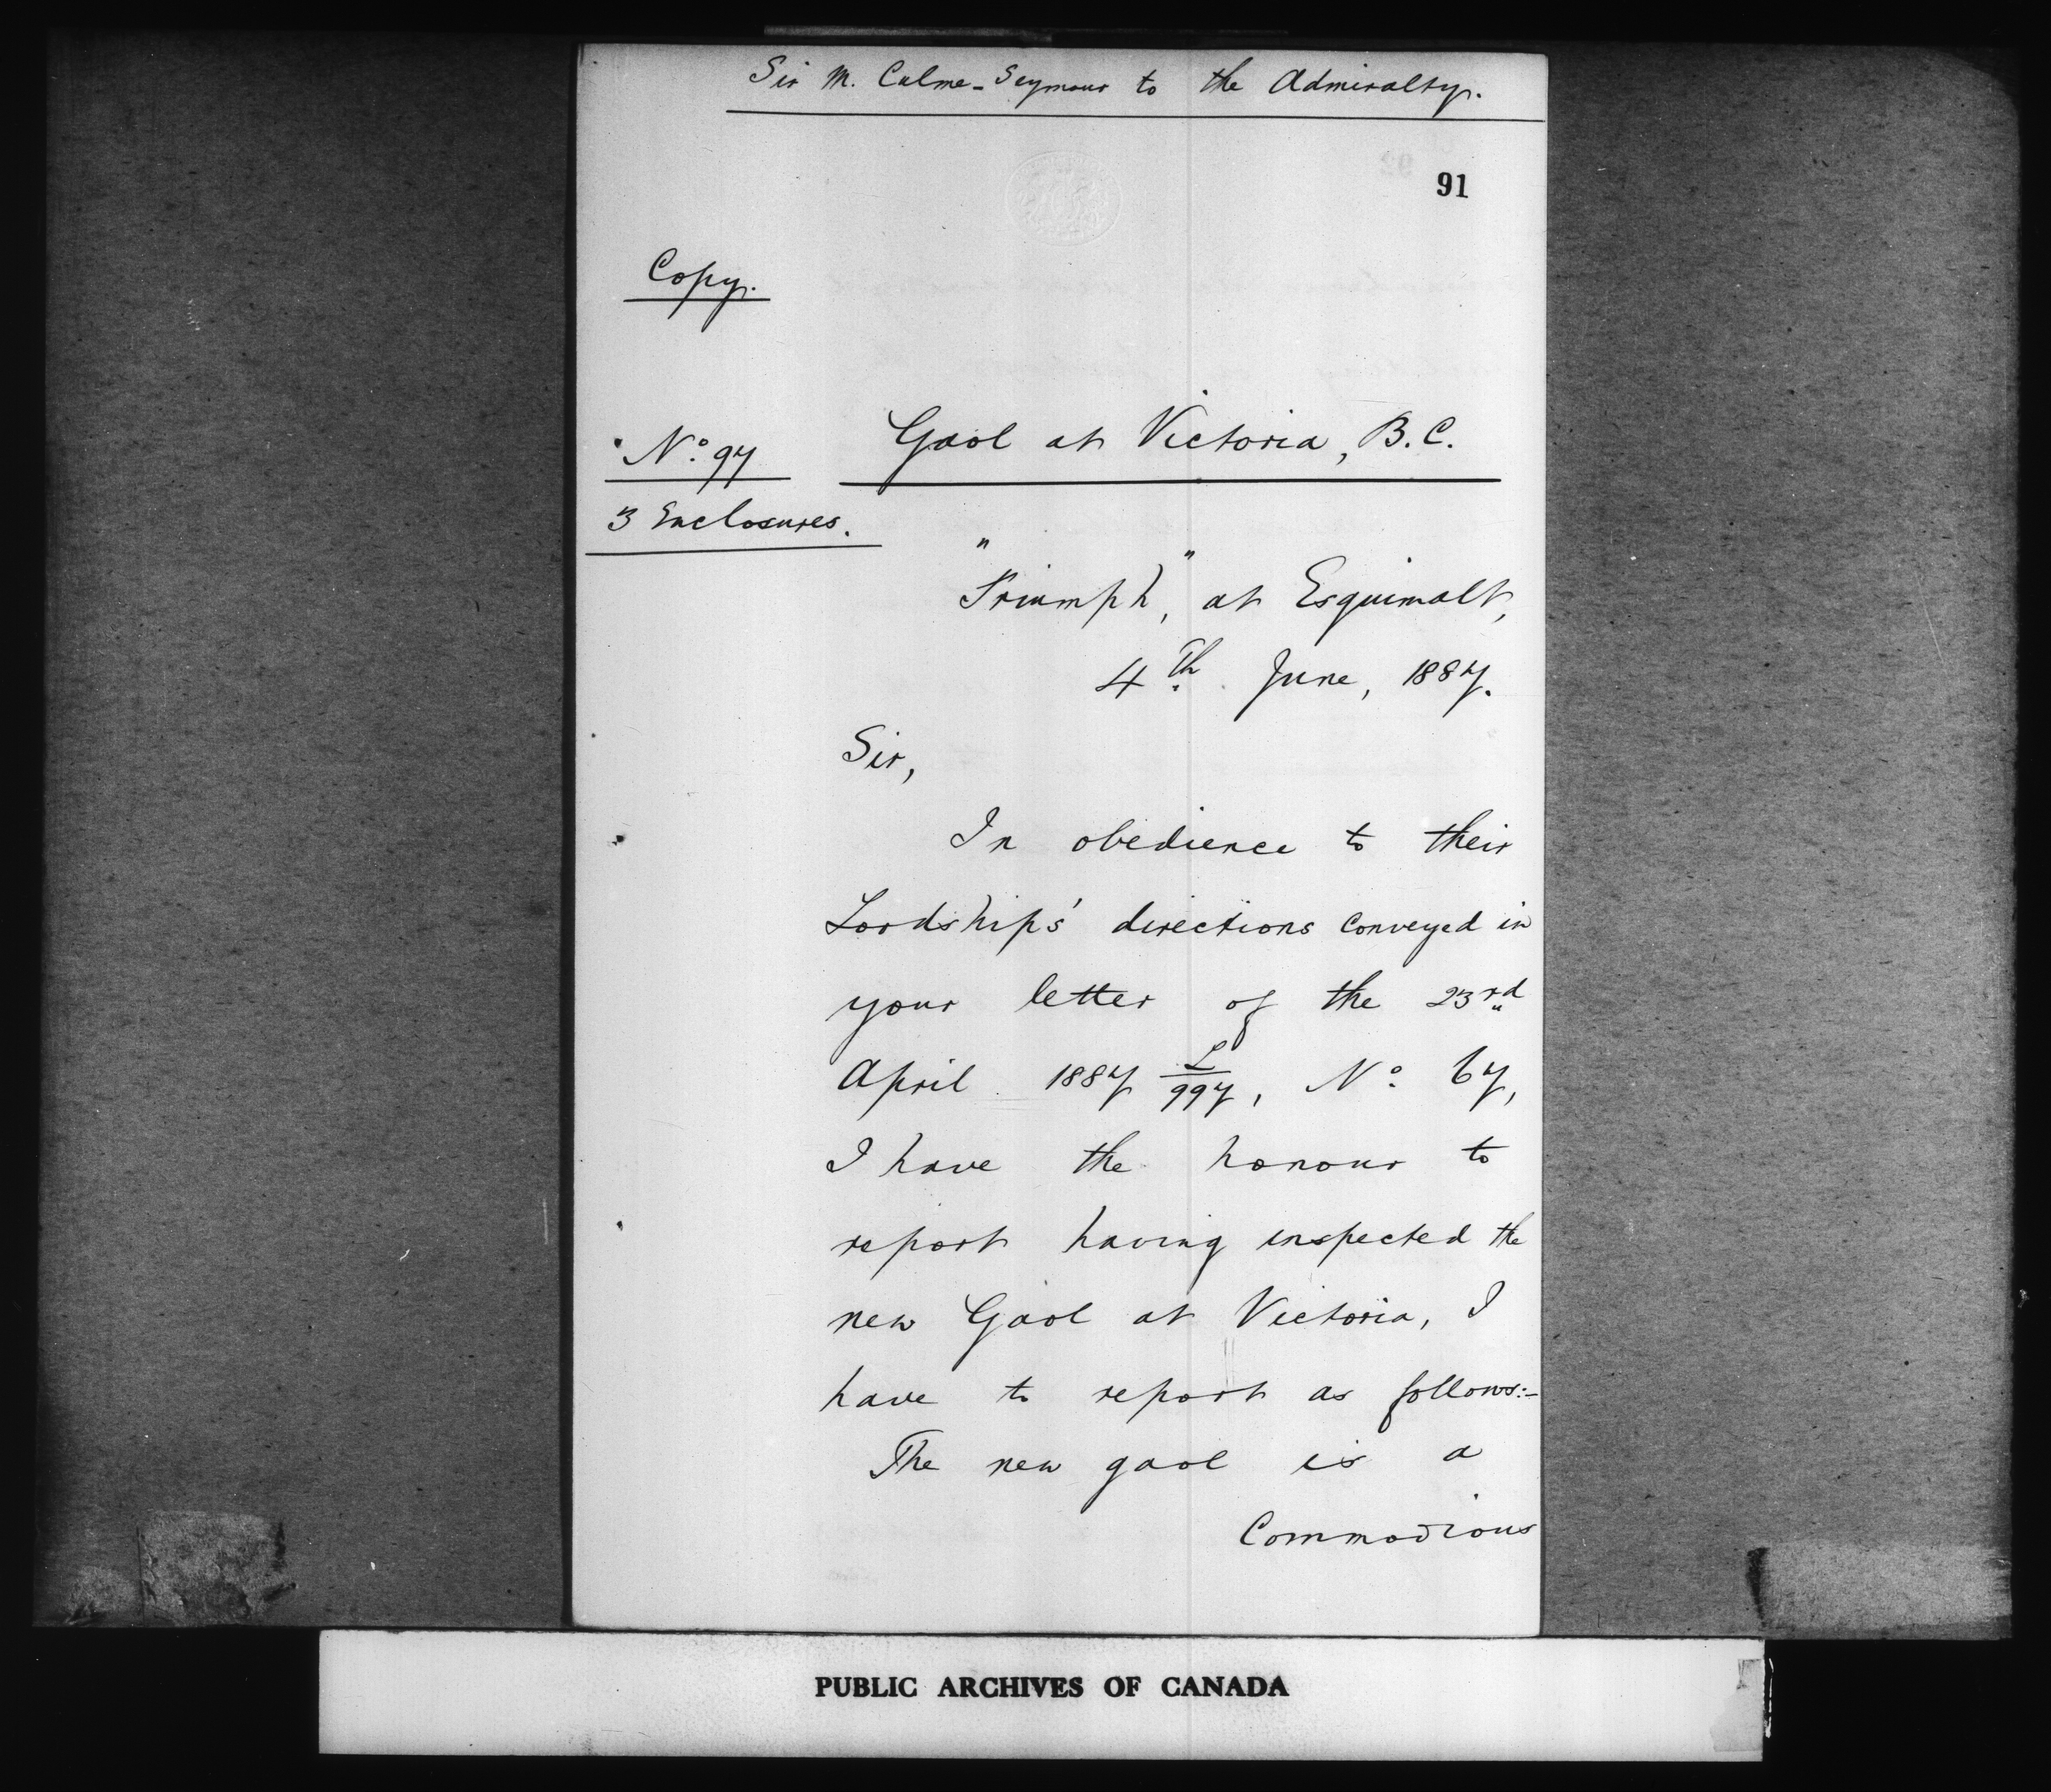 Sir M. Culme-Seymour to the Admiralty.
91
Copy.
No. 97
Gaol at Victoria, B.C.
3 Enclosures.
"Triumph", at Esquimalt,
4th June, 1887.
Sir,
In obedience to their
Lordships' directions conveyed in
your letter of the 23rd
April 1887 L/997, No. 67,
I have the honour to
report having inspected the
new Gaol at Victoria, I
have to report as follows:-
The new gaol is a
Commodious
PUBLIC ARCHIVES OF CANADA